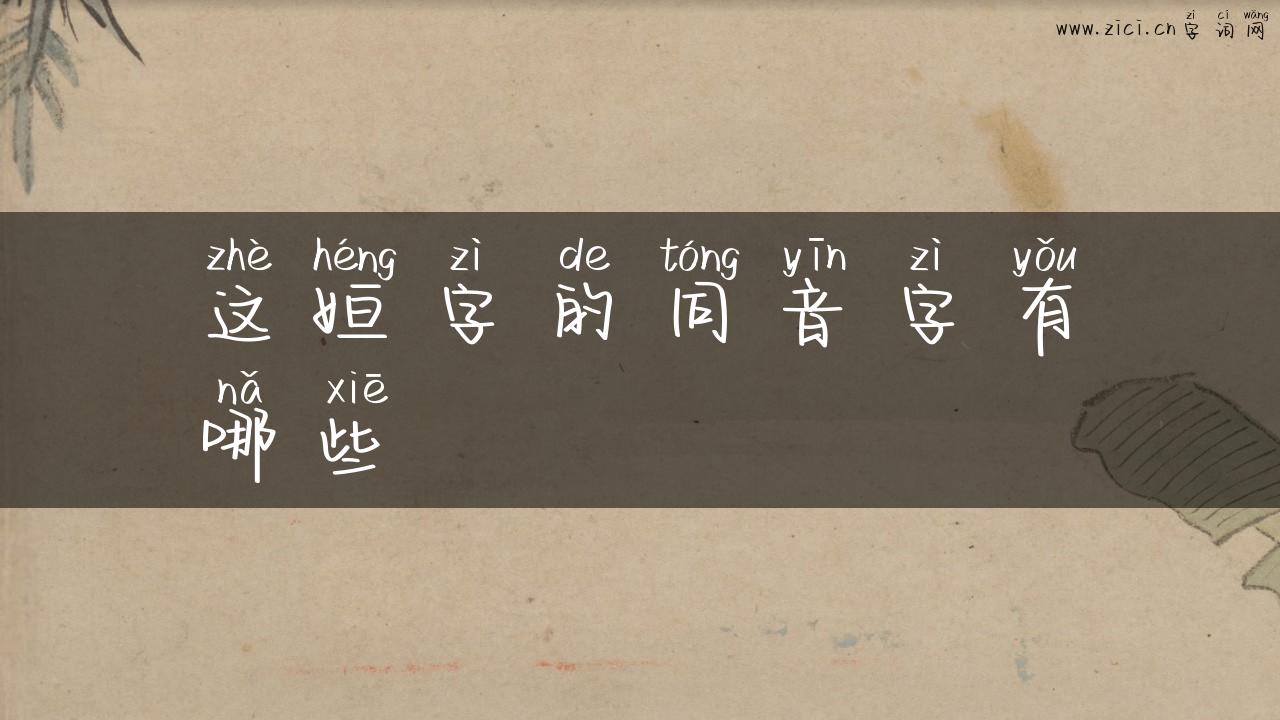 zì cí wǎng
www.zici.cn 字 词 网
zhè héng zì de tóng yīn zì yǒu
这 姮 字 的 同 音 字 有
nǎ xiē
哪 些